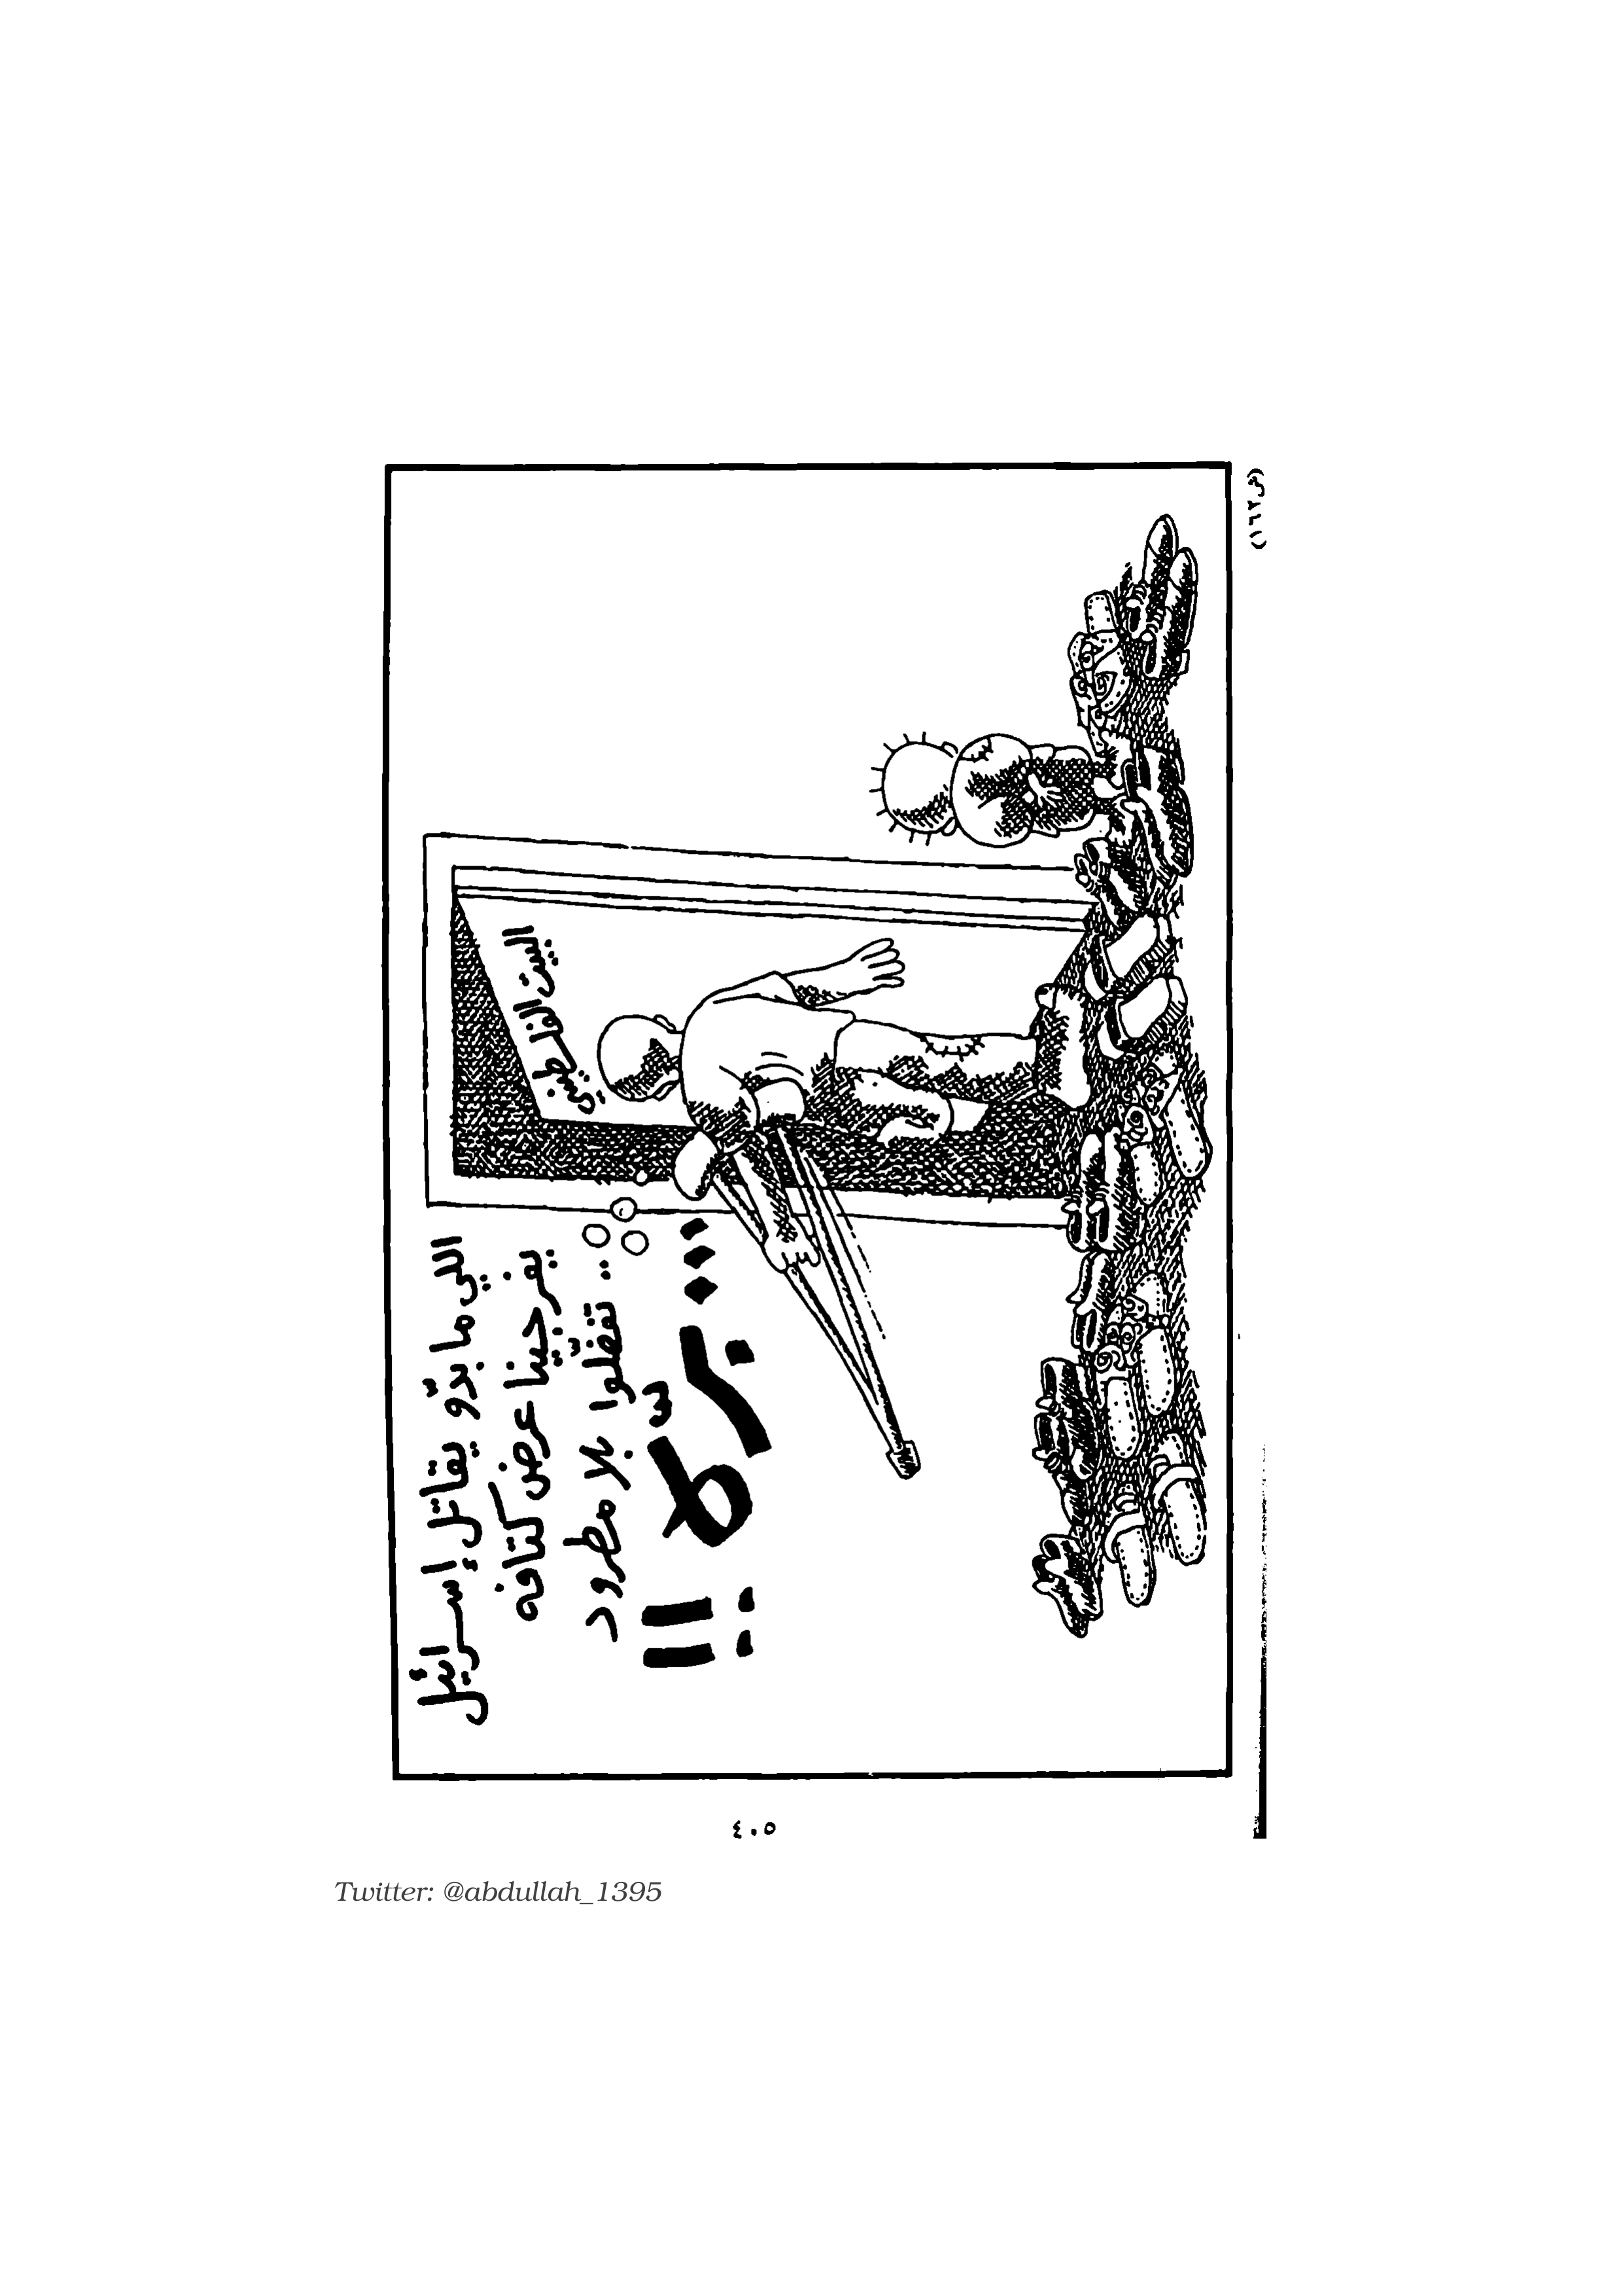 اللي ما بدّو يقاتل إسرائيل
يفرجينا عرض كتافه
.. تفضّلوا بلا مطرود
... برّه !!
البيت الفلسطيني
٤٠٥
Twitter: @abdullah_1395